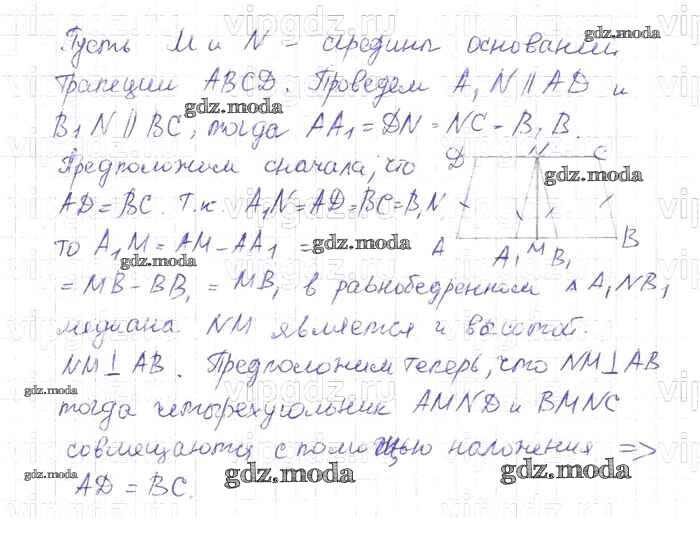 Пусть M и N - средины оснований
трапеции ABCD. Проведем A₁N || AD и
B₁N || BC, тогда AA₁ = DN = NC - B₁B.
Предположим сначала, что
AD = BC. Т.к. A₁N = AD = BC = B₁N,
то A₁M = AM - AA₁ =
= MB - BB₁ = MB₁ в равнобедренном ∆ A₁NB₁
медиана NM является и высотой.
NM ⊥ AB. Предположим теперь, что NM ⊥ AB
тогда четырехугольник AMND и BMNC
совмещаются с помощью наложения =>
AD = BC.
D N C
A A₁ M B₁ B
gdz.moda
gdz.moda
gdz.moda
gdz.moda
gdz.moda
gdz.moda
gdz.moda
gdz.moda
gdz.moda
gdz.moda